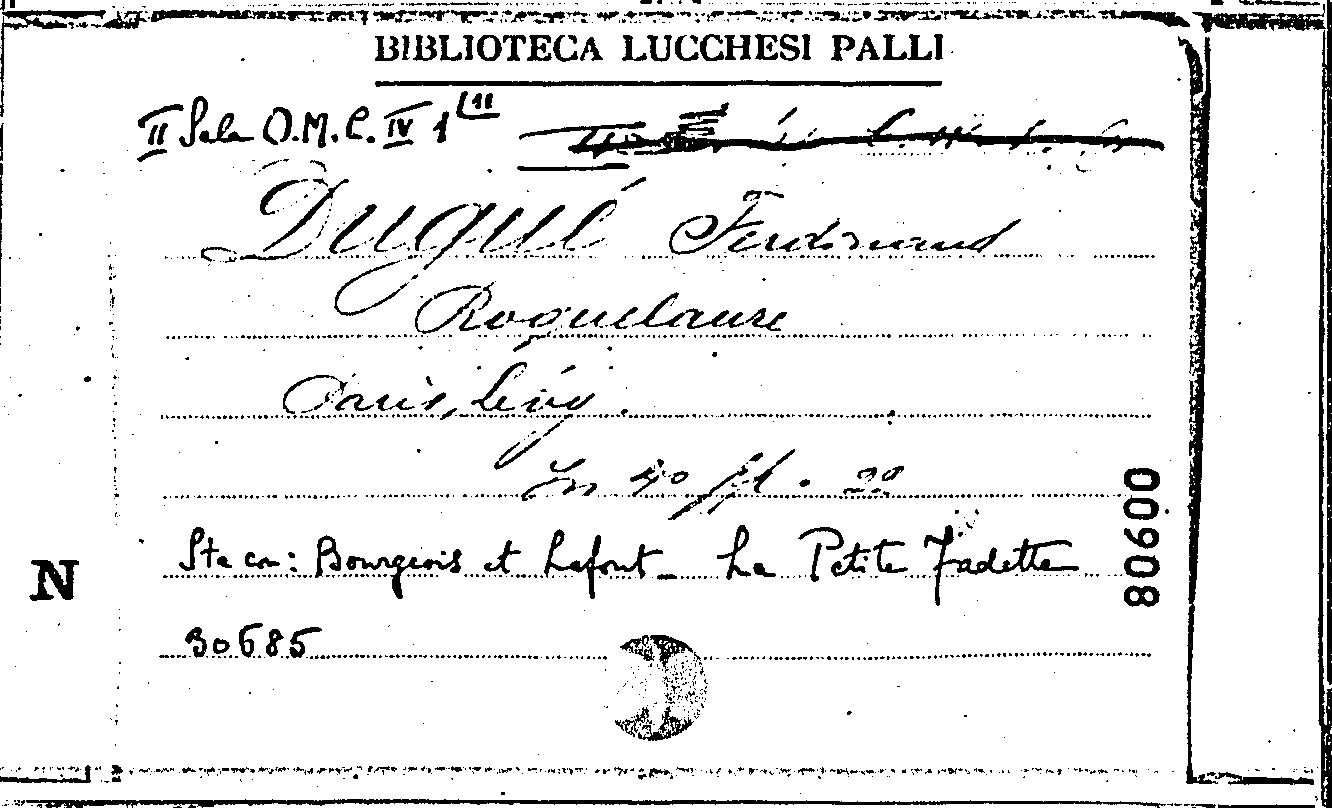 BIBLIOTECA LUCCHESI PALLI
II Sala O.M.C. IV 1 (11
Dugué Ferdinand
Roquelaure
Paris, Lévy.
In 4º ff. 20
Sta con: Bourgeois et Lafont - La Petite Fadette
N
30685
00908